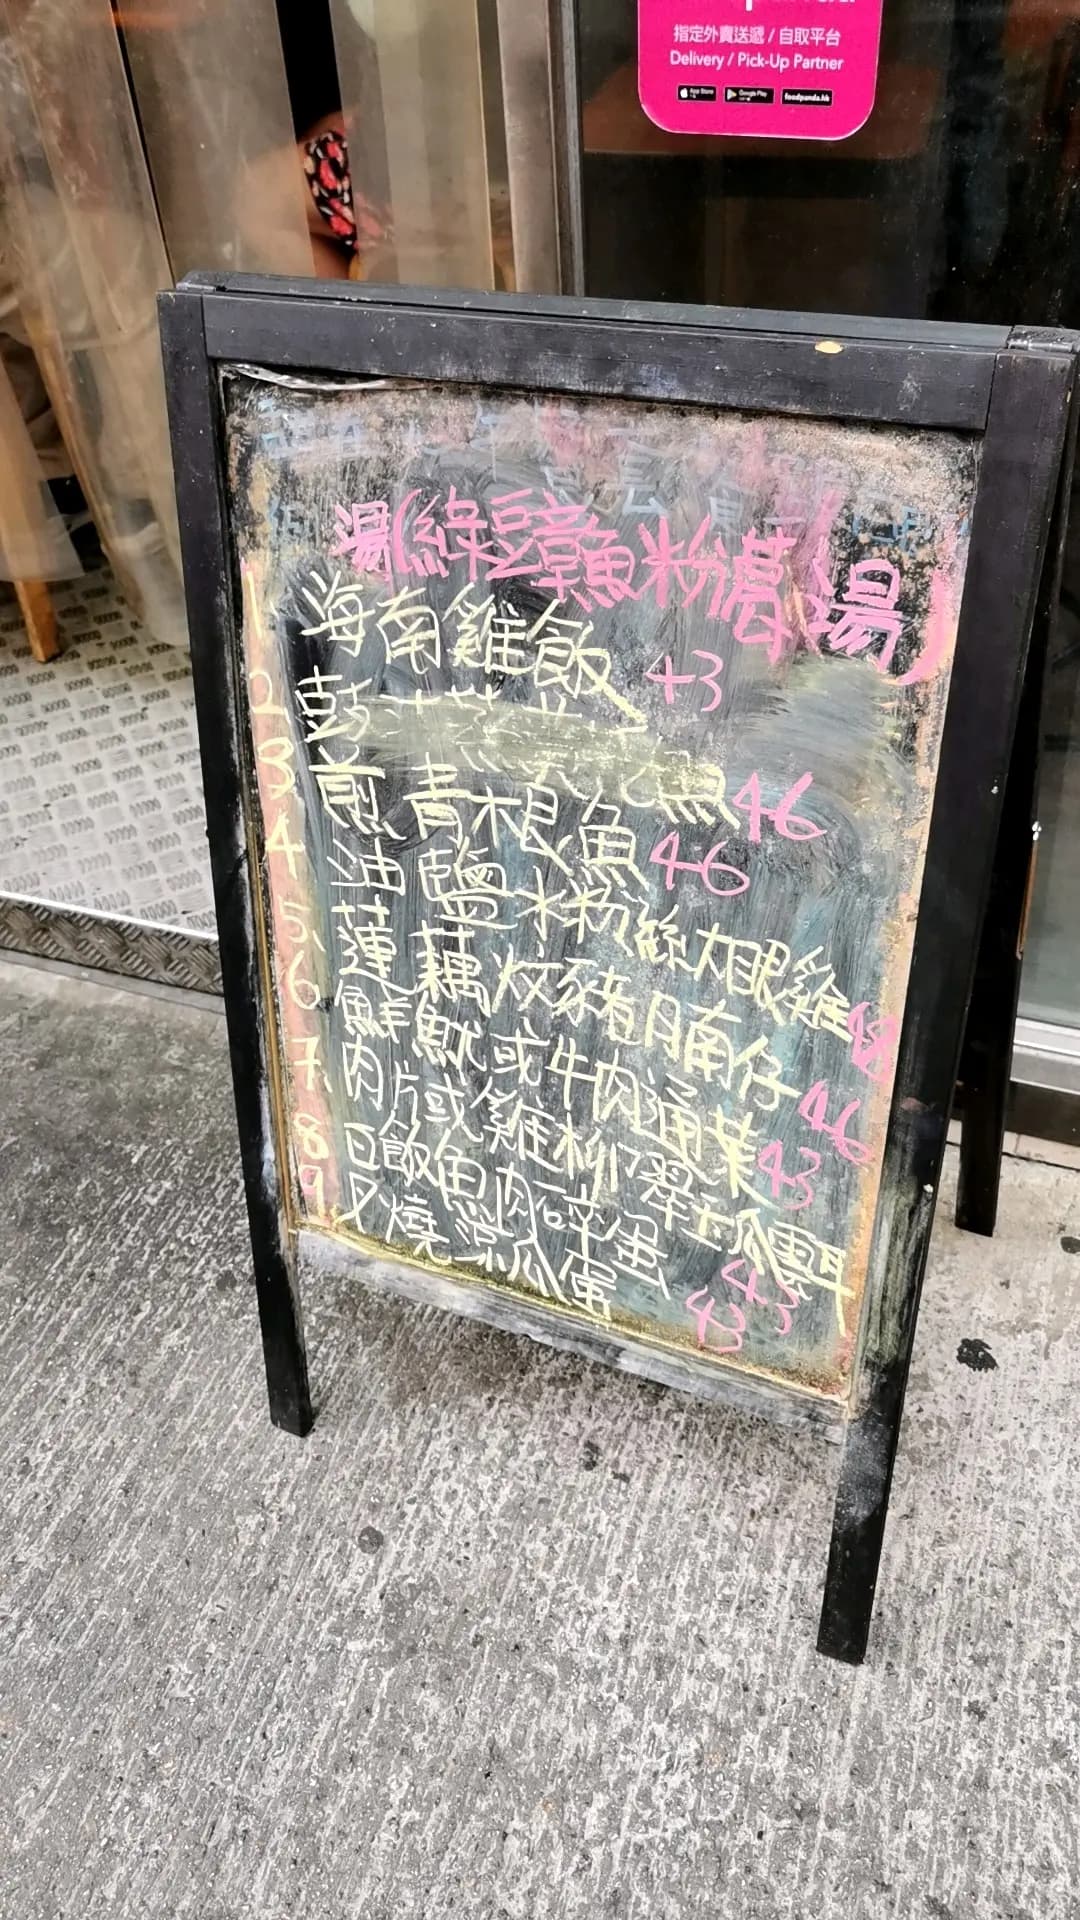 指定外賣送遞 / 自取平台
Delivery / Pick-Up Partner
App Store
Google Play
foodpanda.hk
湯(綠豆章魚粉葛湯)
1. 海南雞飯 43
2. 魚 46
3 煎青根魚 46
4 油鹽水粉絲大眼雞 48
5. 蓮藕炆豬腩仔 46
6. 鮮魷或牛肉通菜 43
7. 肉片或雞柳翠玉瓜雲耳 43
8 白飯魚肉碎蛋
9 叉燒涼瓜蛋 43